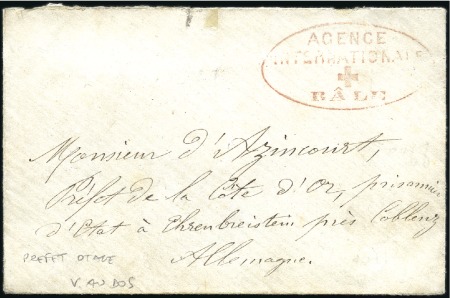 AGENCE
INTERNATIONALE
BÂLE
Monsieur d'Azincourt,
Préfet de la Côte d'Or, prisonnier
d'Etat à Ehrenbreistein près Coblenz
Allemagne.
PREFET OTAGE
V. AU DOS